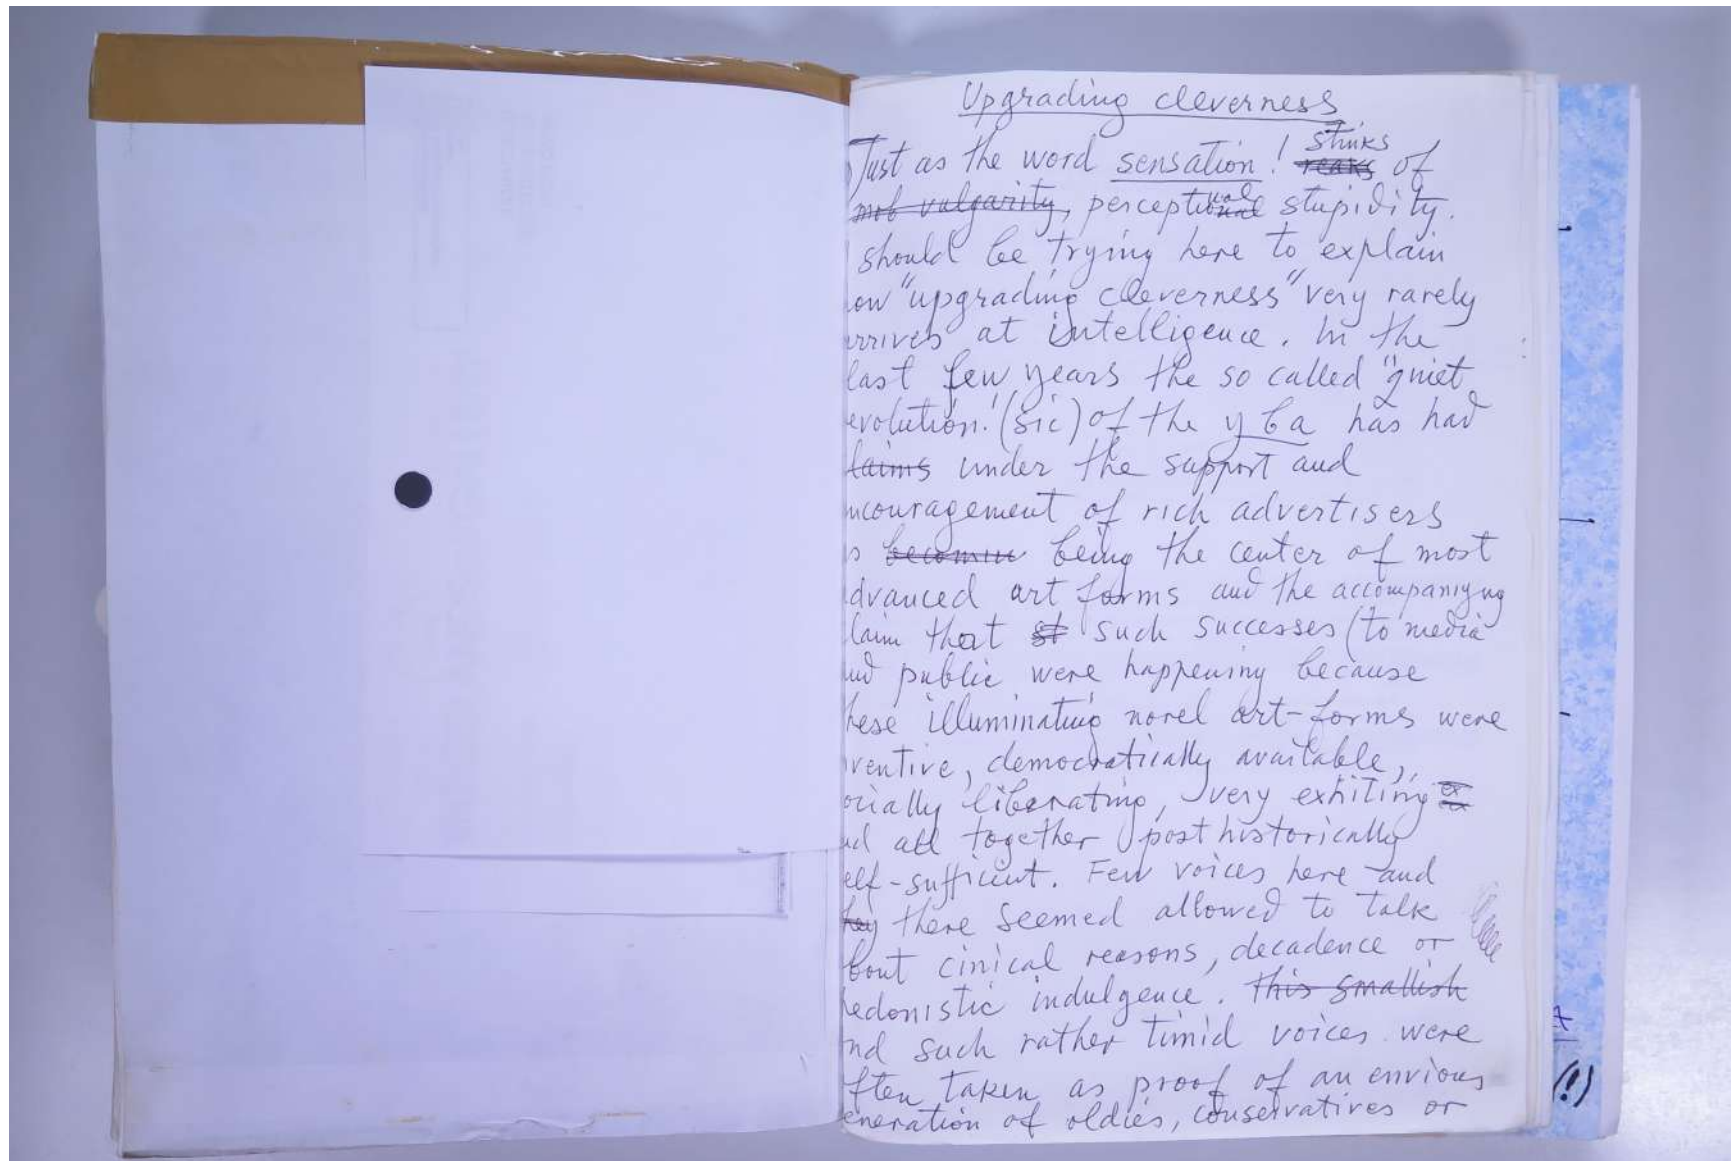 Upgrading cleverness
Just as the word sensation! stinks reaks of
mob vulgarity, perceptional stupidity.
should be trying here to explain
ow "upgrading cleverness" very rarely
rrives at intelligence. In the
last few years the so called "quiet
evolution! (sic) of the yba has had
laims under the support and
ncouragement of rich advertisers
s becomin being the center of most
dvanced art forms and the accompaniyng
laim that st such successes (to media
nd public were happening because
hese illuminating novel art-forms were
ventive, democratically available,
ocially liberating, very exhiting ex
nd all together post historically
elf-sufficient. Few voices here and
hey there seemed allowed to talk
bout cinical reasons, decadence or
hedonistic indulgence. This smallish
nd such rather timid voices were
ften taken as proof of an envious
eneration of oldies, conservatives or
(!)